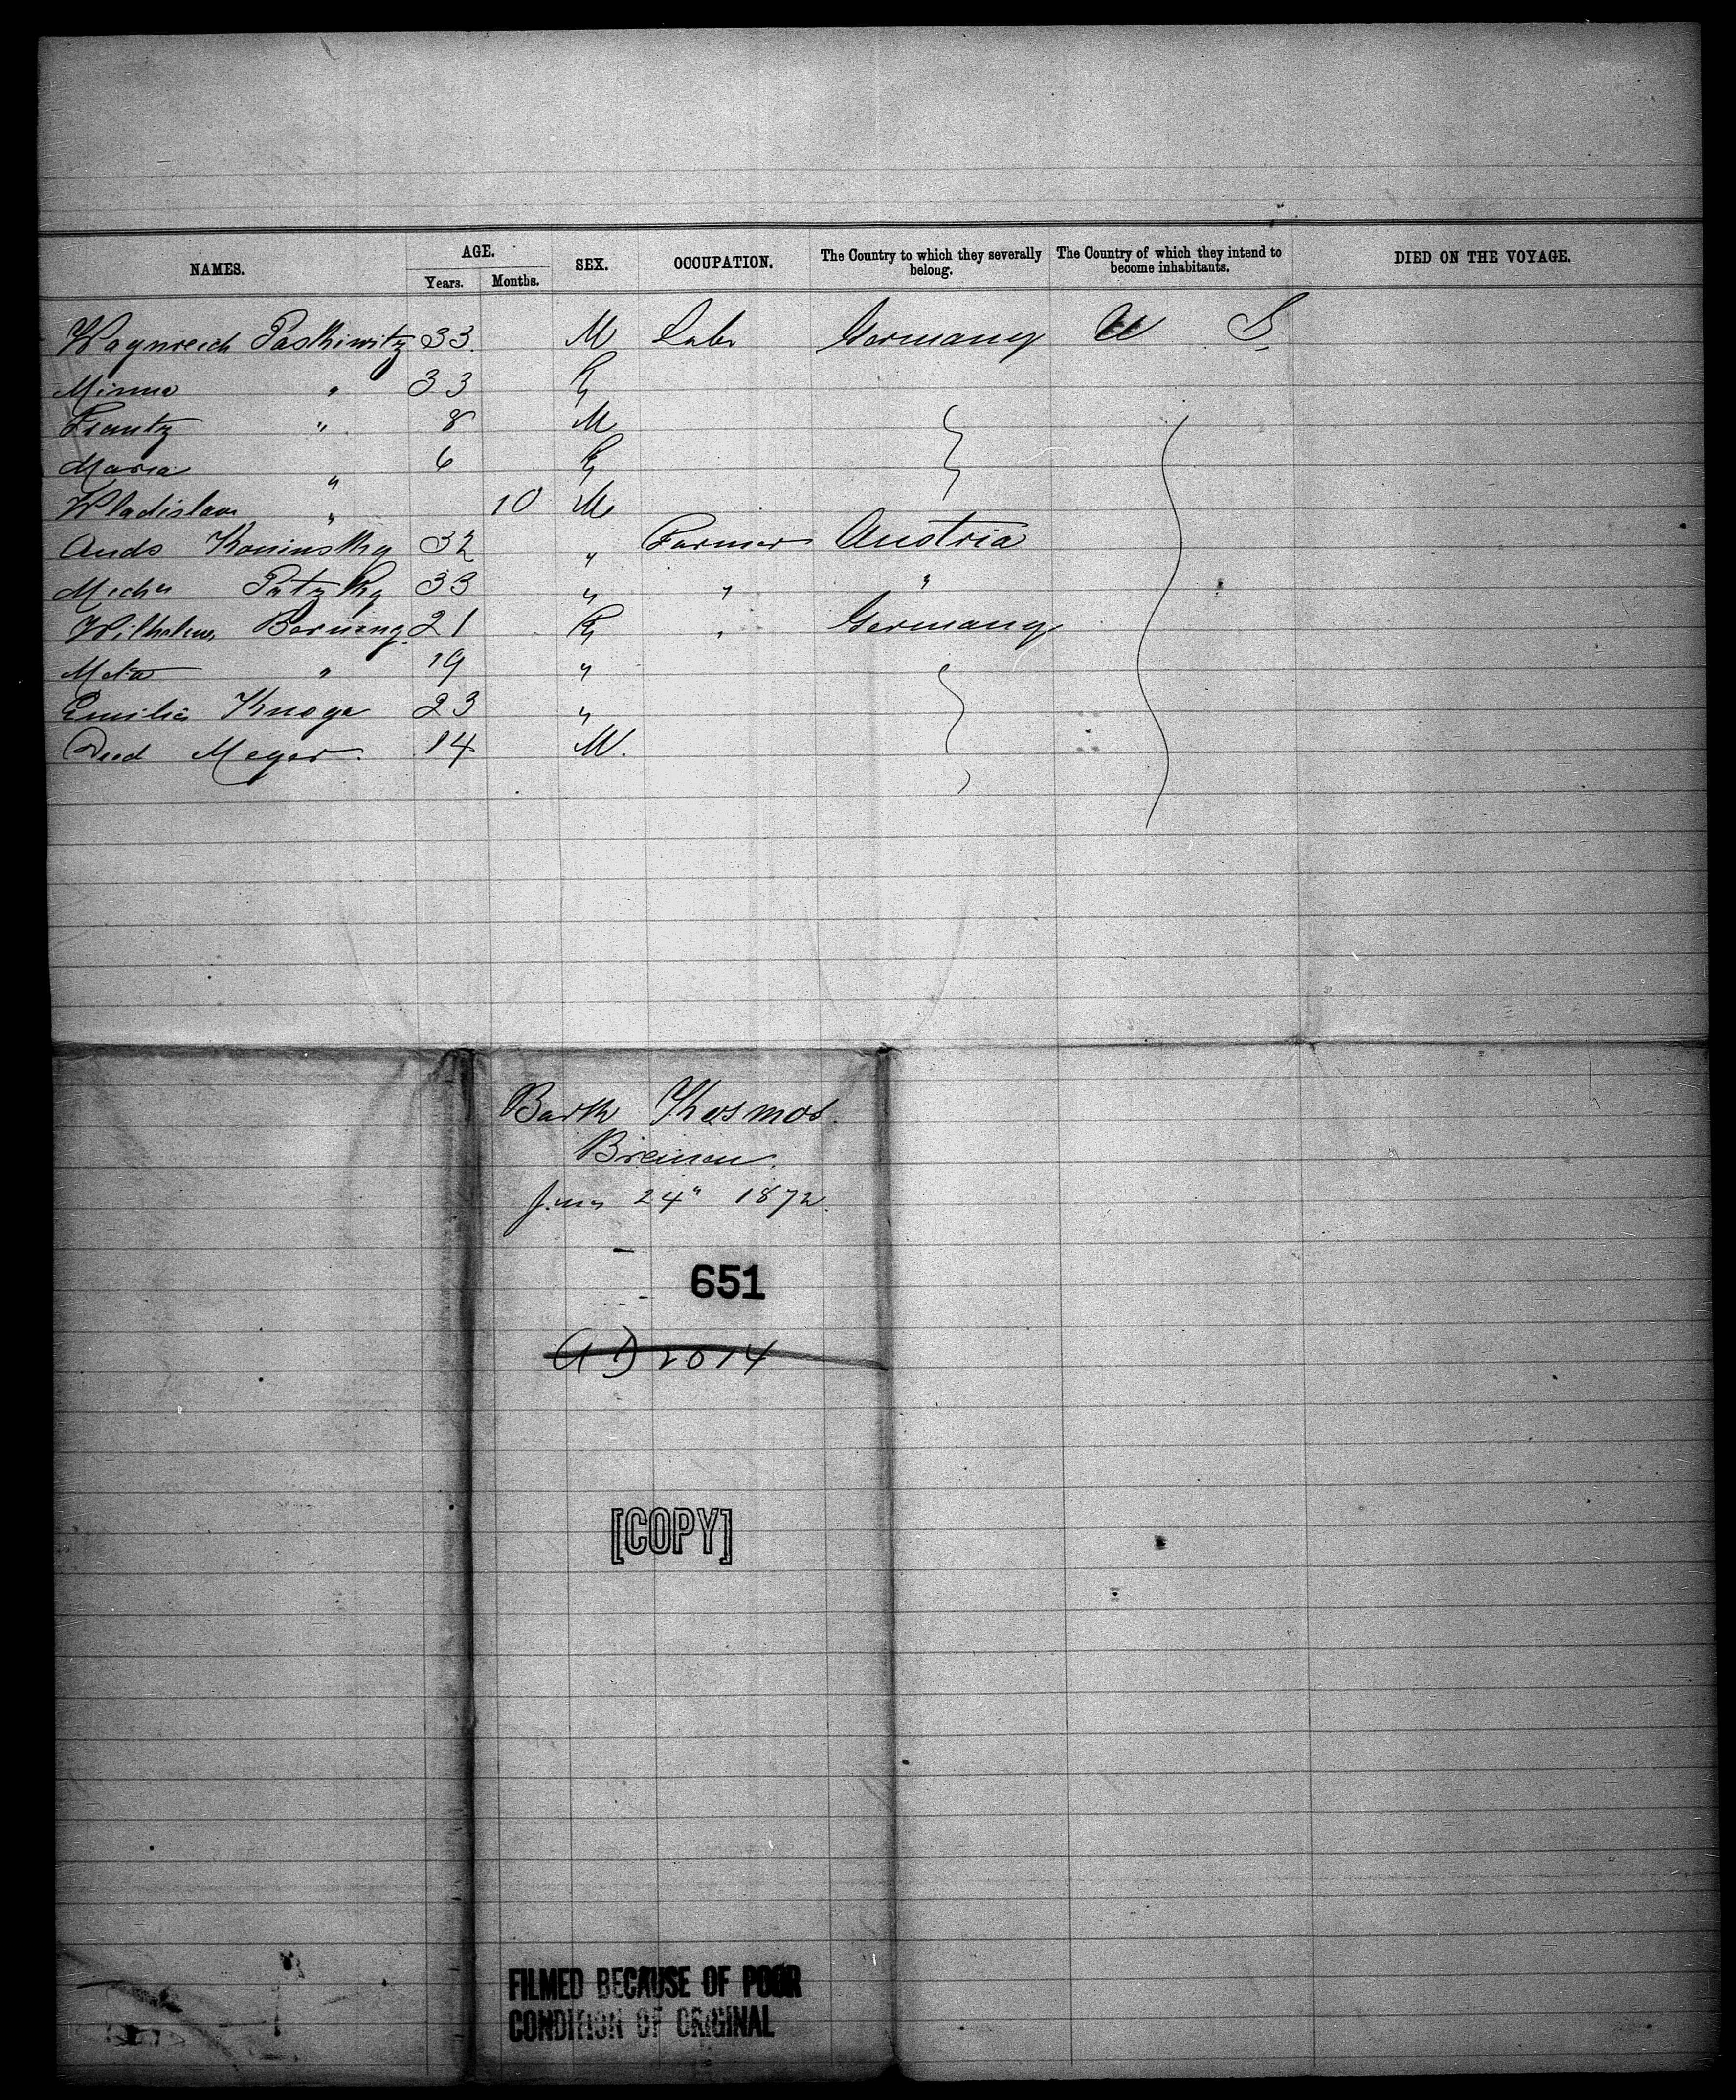 NAMES. AGE. SEX. OCCUPATION. The Country to which they severally belong. The Country of which they intend to become inhabitants. DIED ON THE VOYAGE.
Years. Months.
Paskiwitz 33 M Labr Germany U S
Minna " 33 F
Frantz " 8 M
Maria " 6 F
Wladislaw " 10 M
Ands Koninsky 32 " Farmer Austria
Michl Patzky 33 " " "
Wilhelm Berning 21 F " Germany
Meta " 19 "
Emilie Knoge 23 "
Died Meyer 14 M.
Bark Kosmos.
Bremen.
June 24" 1872.
651
2014
[COPY]
FILMED BECAUSE OF POOR
CONDITION OF ORIGINAL